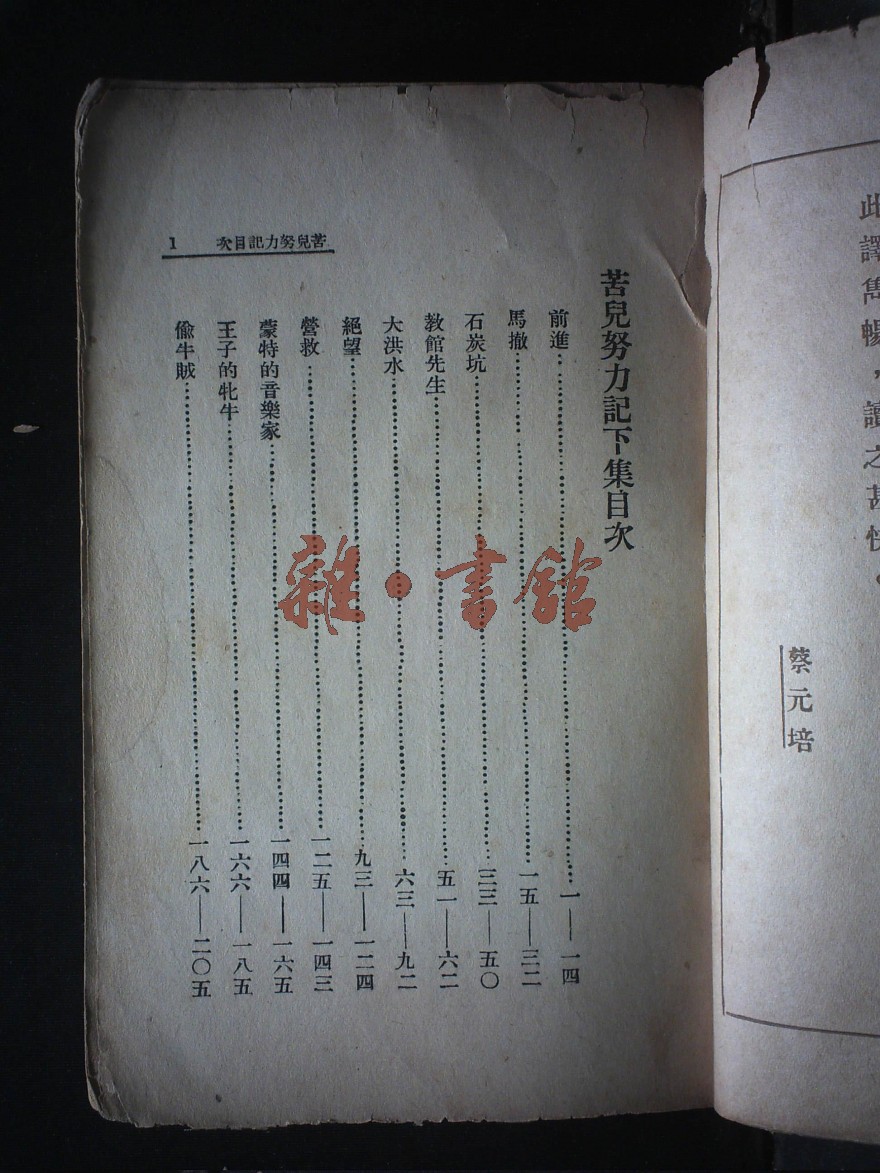 此譯雋暢，讀之甚快。
蔡元培
苦兒努力記目次 1
苦兒努力記下集目次
前進⋯⋯一——一四
馬撤⋯⋯一五——三二
石炭坑⋯⋯三三——五〇
教館先生⋯⋯五一——六二
大洪水⋯⋯六三——九二
絕望⋯⋯九三——一二四
營救⋯⋯一二五——一四三
蒙特的音樂家⋯⋯一四四——一六五
王子的牝牛⋯⋯一六六——一八五
偷牛賊⋯⋯一八六——二〇五
雜·書館